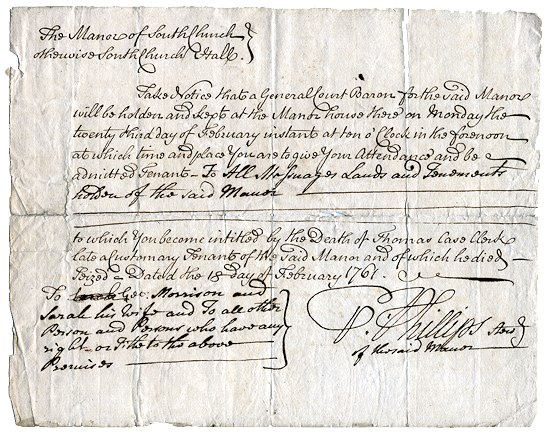 The Manor of South Church
otherwise South Church Hall.
Take Notice that a General Court Baron for the said Manor
will be holden and kept at the Manor house there on Monday the
twenty third day of February instant at ten o'Clock in the forenoon
at which time and place You are to give Your Attendance and be
admitted Tenant - To All Messuages Lands and Tenements
holden of the said Manor
to which You become intitled by the Death of Thomas Case Clerk
late a customary Tenant of the said Manor and of which he died
Seized - Dated the 18 day of February 1761.
To Geo: Morrison and
Sarah his Wife and To all other
Person and Persons who have any
right or Title to the above
Premises
P. Phillips
of the said Manor